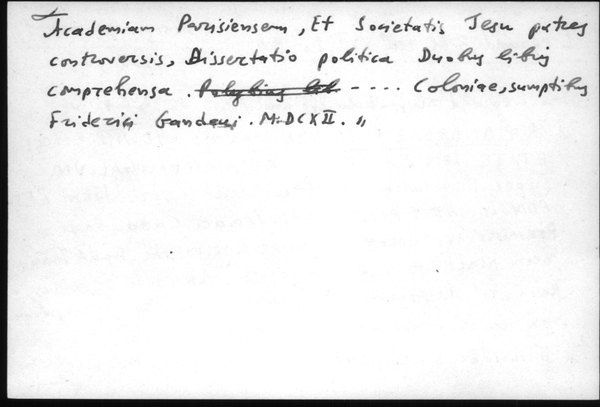 Academiam Parisiensem, Et Societatis Jesu patres
controversis, Dissertatio politica Duobus libris
comprehensa. Polybius lib. - .... Coloniae, sumptibus
Friderici Gandavi. M.DCXII. "